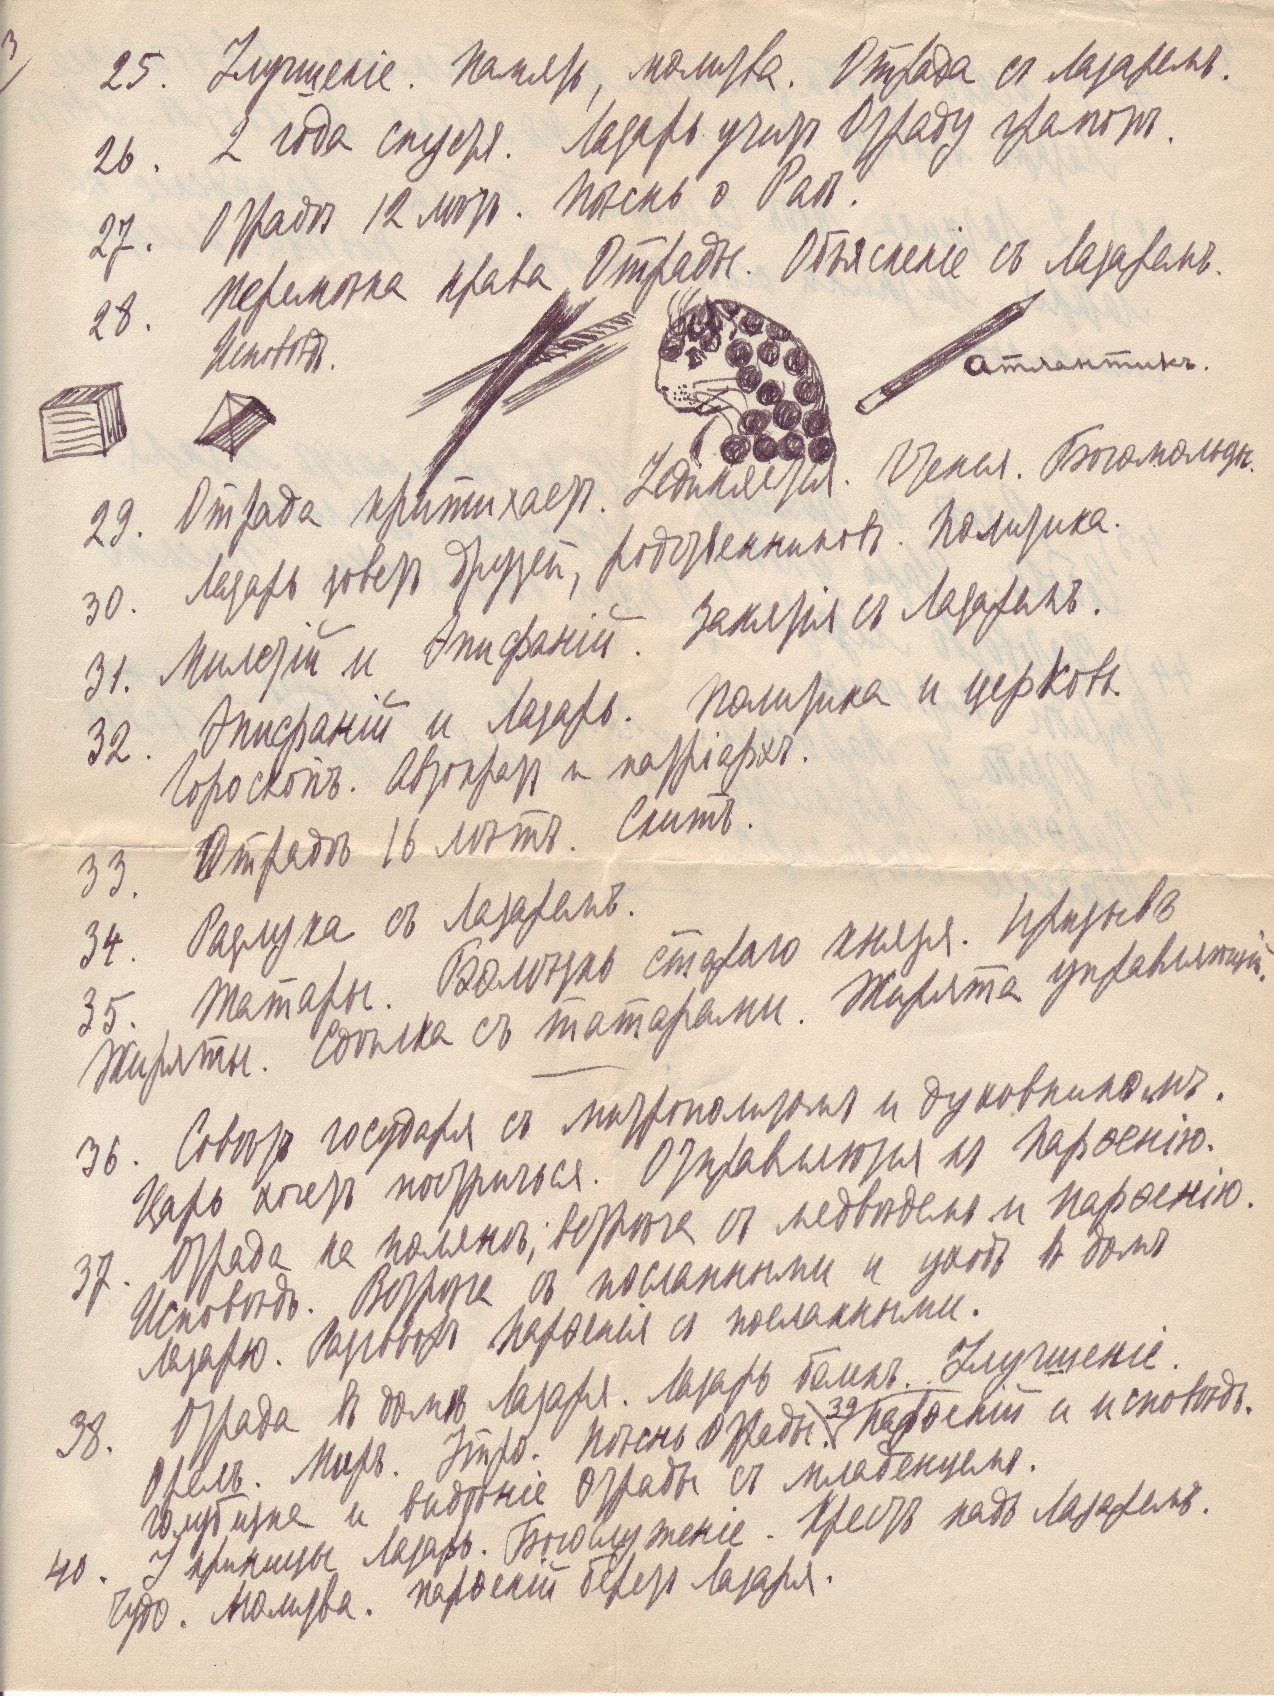 3
25. Улучшеніе. Память, молитва. Отрада съ Лазаремъ.
26. 2 года спустя. Лазарь учитъ Отраду грамотѣ.
27. Отрадѣ 12 лѣтъ. Пѣснь о Раѣ.
28. Перемѣна нрава Отрады. Объясненіе съ Лазаремъ.
Исповѣдь.
атлантикъ.
29. Отрада притихаетъ. Уединяется. Ценія. Богомольцы.
30. Лазарь зоветъ друзей, родственниковъ. Политика.
31. Милетій и Эпифаній. Занятія съ Лазаремъ.
32. Эпифаній и Лазарь. Политика и церковь.
Гороскопъ. Автократъ и патріархъ.
33. Отрадѣ 16 лѣтъ. Скитъ.
34. Разлука съ Лазаремъ.
35. Татары. Болѣзнь стараго князя. Призывъ
Жиряты. Сдѣлка съ татарами. Жирята управляющій.
36. Совѣтъ государя съ митрополитомъ и духовникомъ.
Царь хочетъ постричься. Отправляются къ Парѳенію.
37. Отрада на полянѣ; встрѣча съ медвѣдемъ и Парѳенію.
Исповѣдь. Встрѣча съ посланными и уходъ въ домъ
Лазарю. Разговоръ Парѳенія съ посланными.
38. Отрада въ домѣ Лазаря. Лазарь боленъ. Улучшеніе.
Орелъ. Миръ. Утро. Пѣснь Отрады. 39 Парѳеній и исповѣдь.
Голубица и видѣніе Отрады съ младенцемъ.
40. У криницы Лазарь. Богослуженіе. Крестъ надъ Лазаремъ.
Чудо. Молитва. Парѳеній беретъ Лазаря.